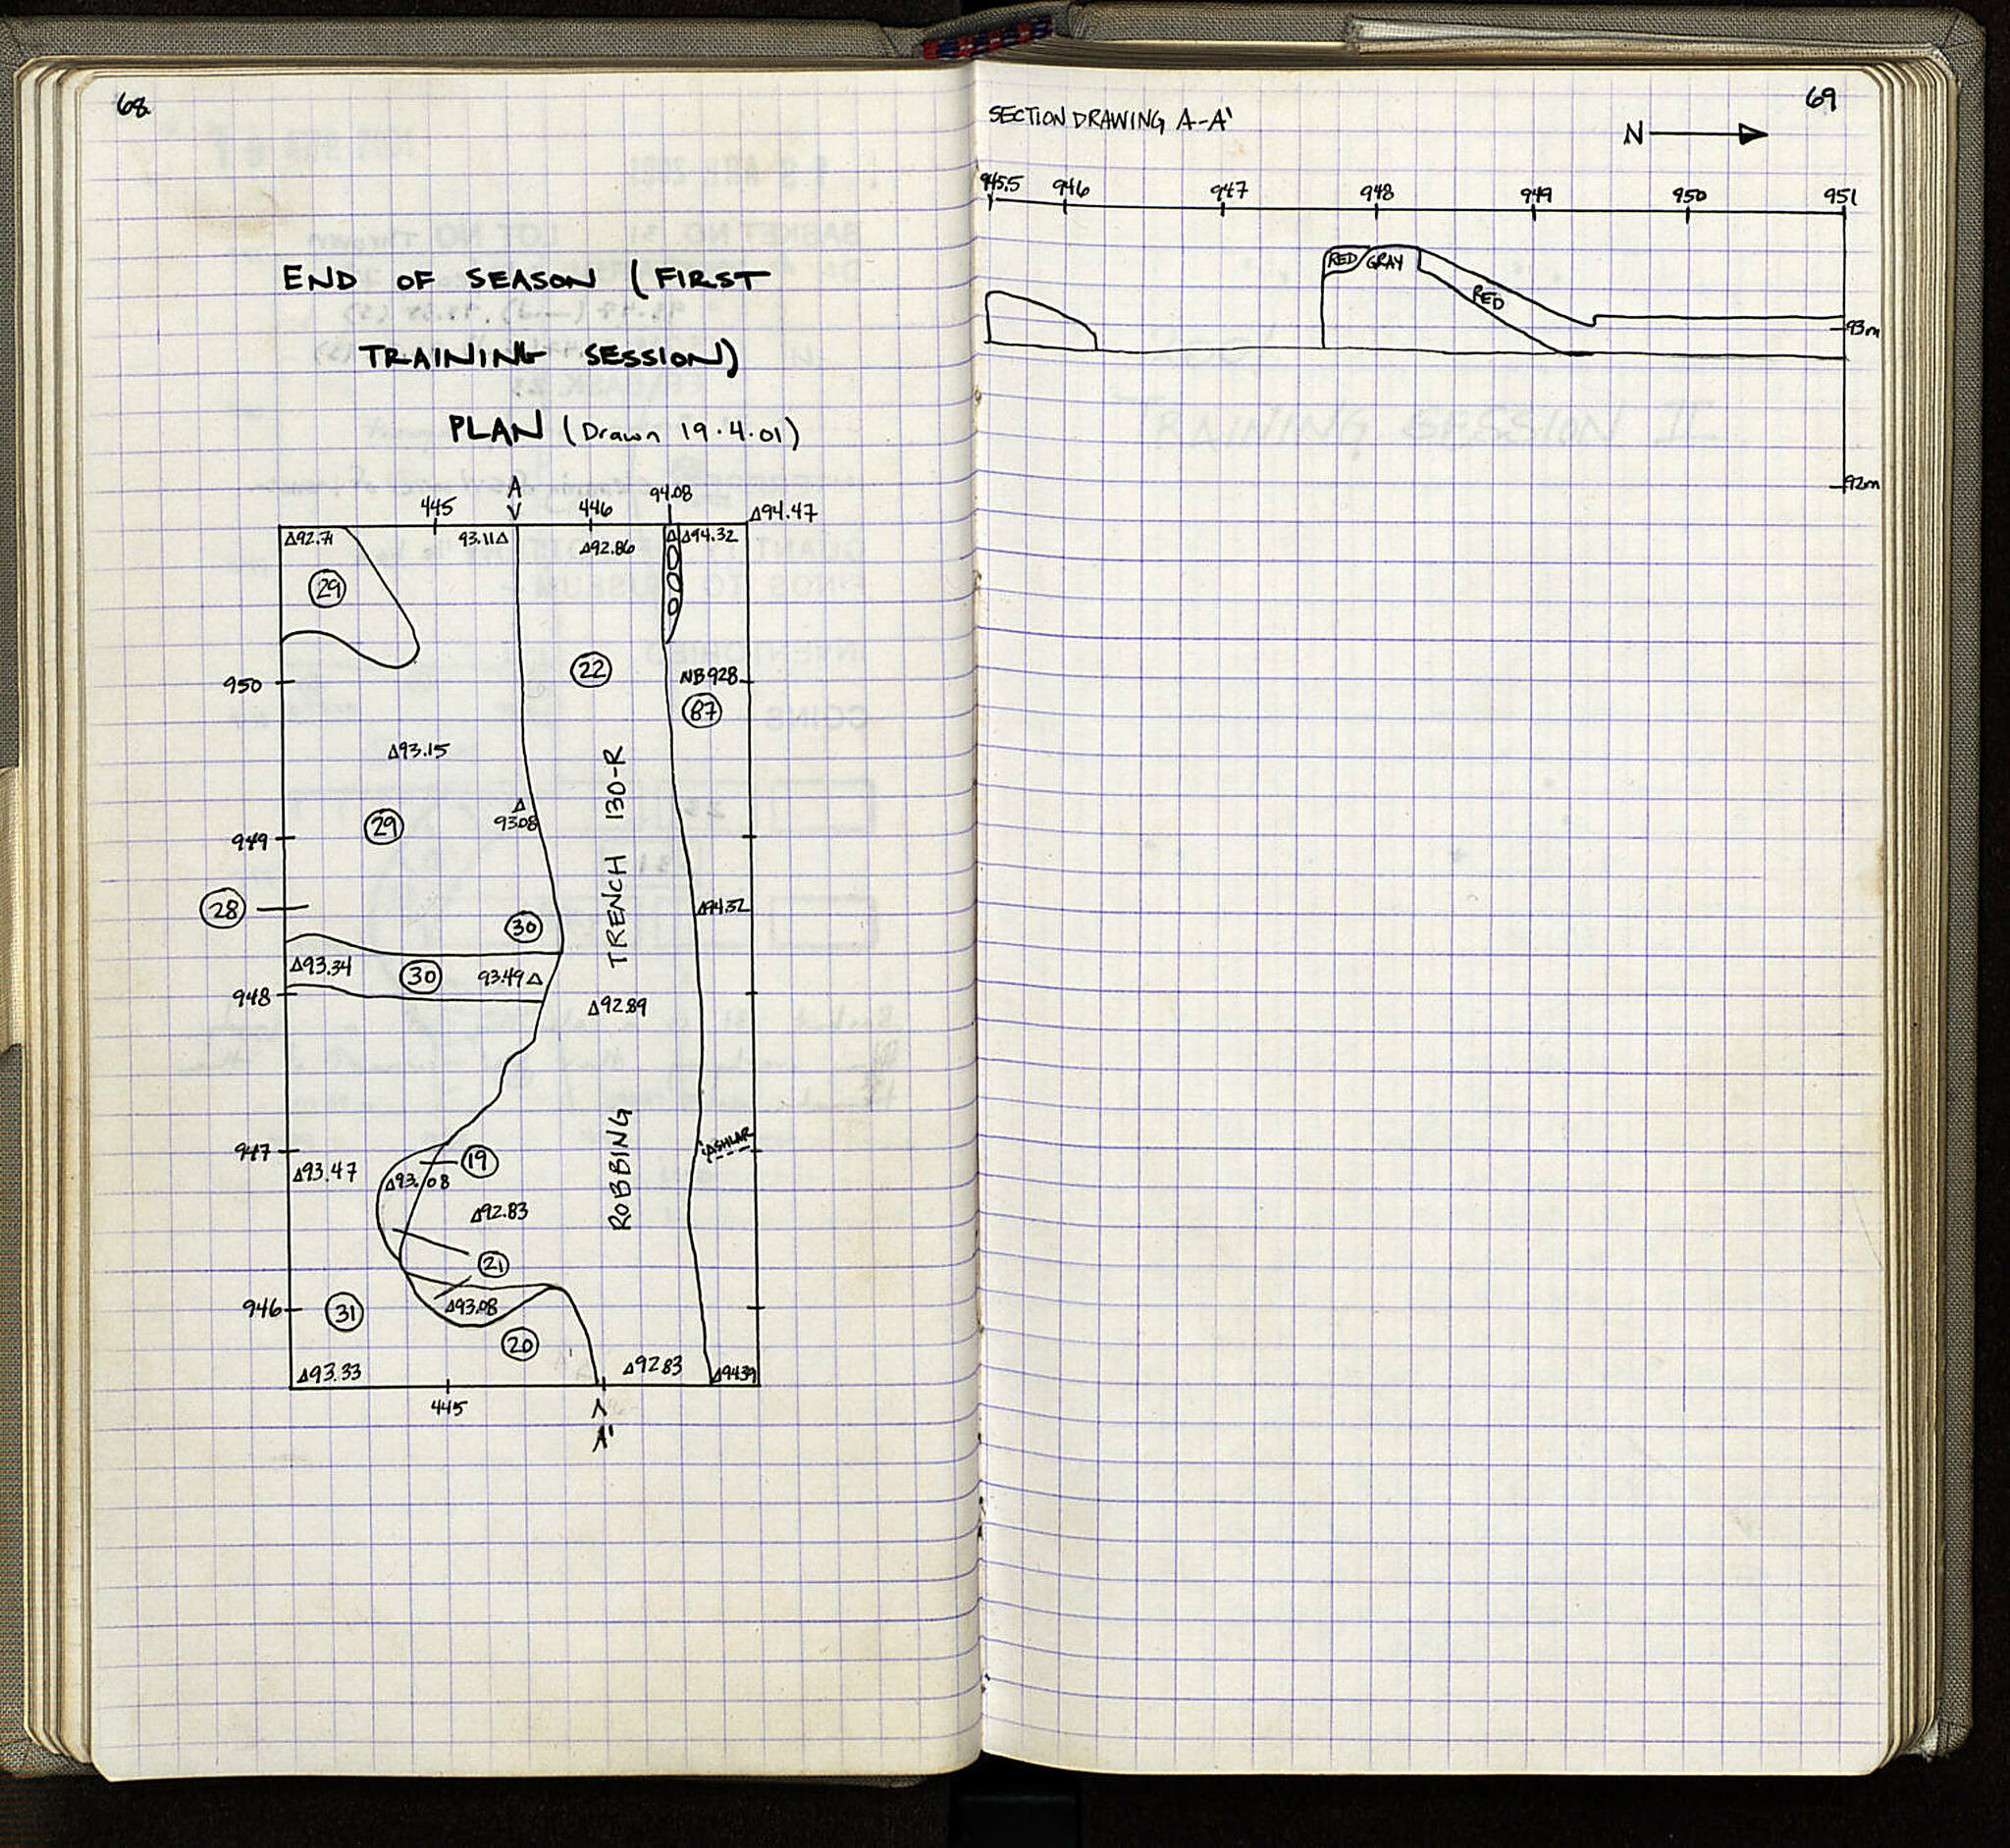 68
END OF SEASON (FIRST
TRAINING SESSION)
PLAN (Drawn 19.4.01)
A
445 446 94.08 Δ94.47
Δ92.71 93.11Δ Δ92.86 Δ Δ94.32
29
22
950 NB928
87
Δ93.15
Δ
93.08
29
949
28
Δ94.32
30
Δ93.34 30 93.49Δ
948
Δ92.89
ROBBING TRENCH 130-R
ASHLAR
947
19
Δ93.47 Δ93.08
Δ92.83
21
946 31 Δ93.08
20
Δ93.33 Δ92.83 Δ94.39
445
A'
69
SECTION DRAWING A-A'
N
945.5 946 947 948 949 950 951
RED GRAY
RED
93m
92m